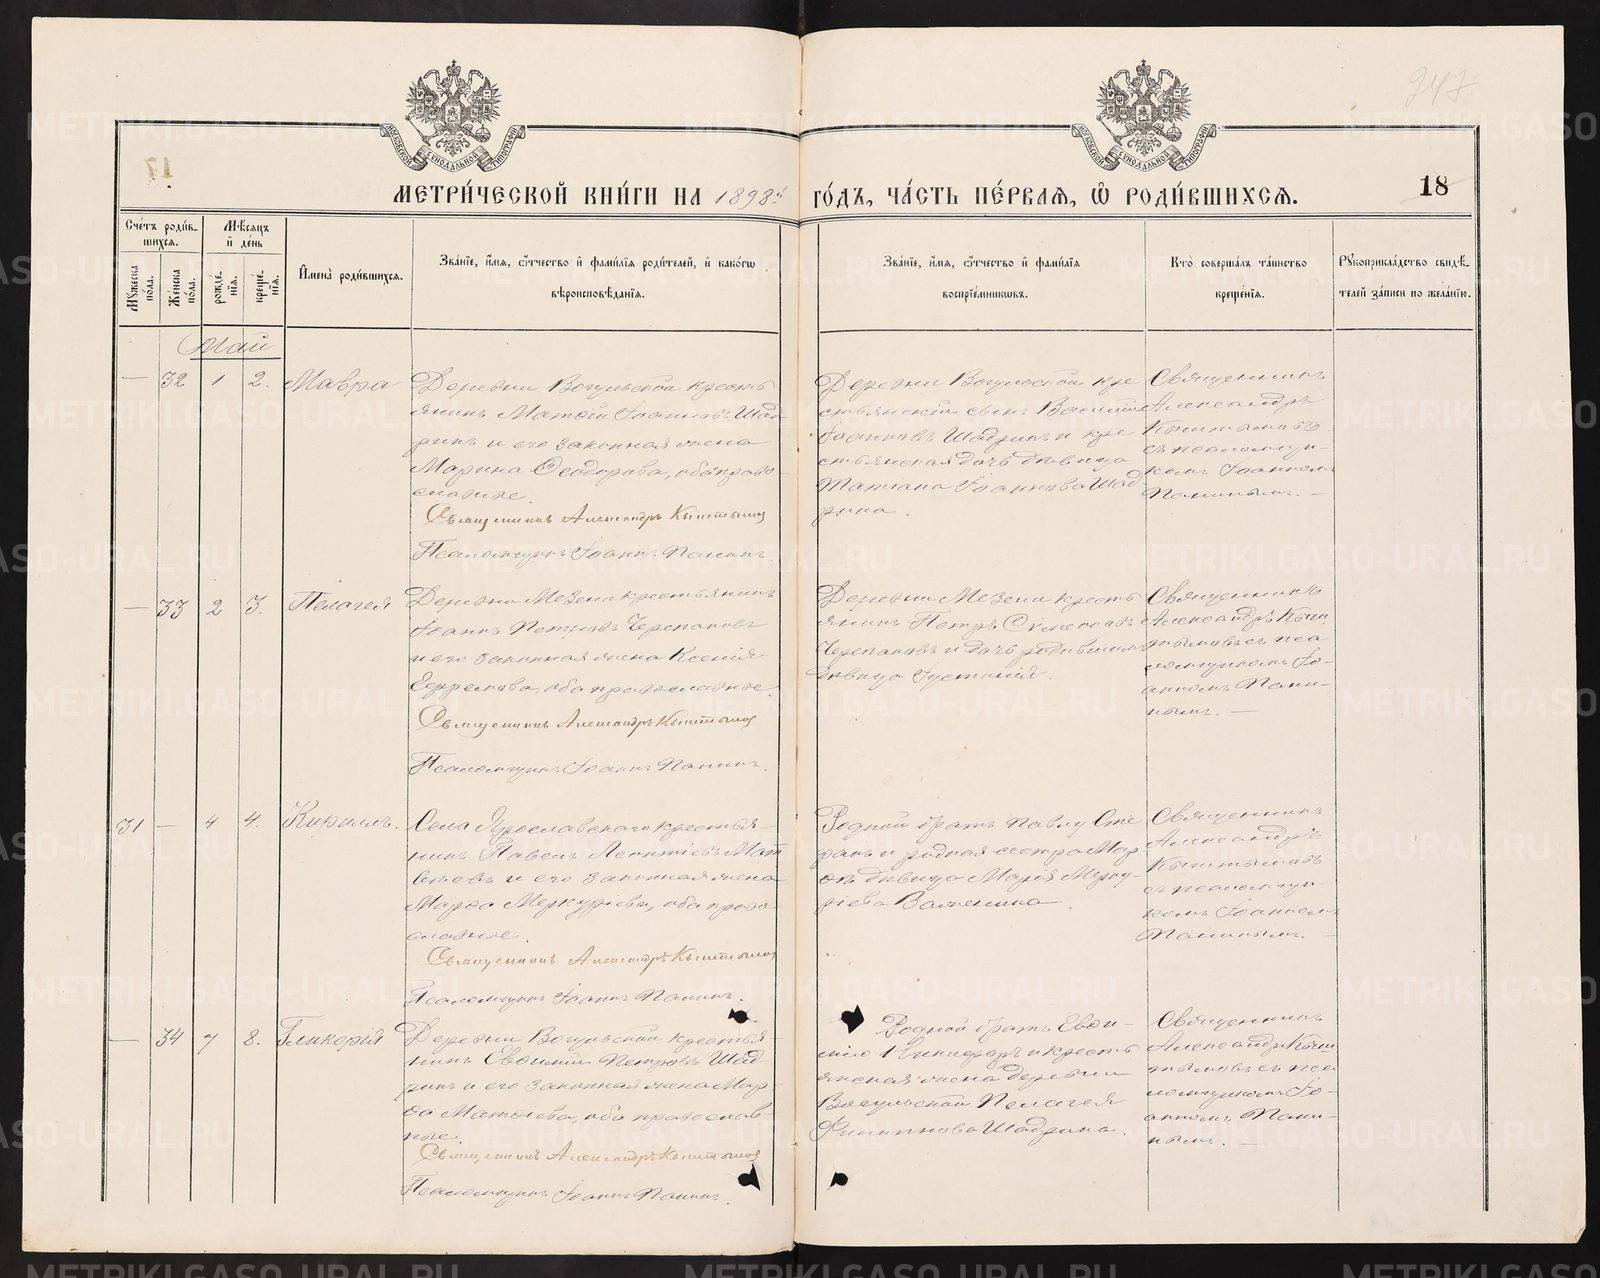 247
МОСКОВСКОЙ СѴНОДАЛЬНОЙ ТИПОГРАФІИ
МОСКОВСКОЙ СѴНОДАЛЬНОЙ ТИПОГРАФІИ
МЕТРИ́ЧЕСКОЙ КНИ́ГИ НА 1898й ГО́ДЪ, ЧА́СТЬ ПЕ́РВАЯ, Ѡ҆ РОДИ́ВШИХСЯ. 18
Сче́тъ роди́вшихся.
Му́жеска по́ла.
Же́нска по́ла.
Мѣ́сяцъ и҆ де́нь
рожде́нїя.
креще́нїя.
И҆мена̀ роди́вшихся.
Зва́нїе, и҆́мя, ѻ҆́тчество и҆ фами́лїя роди́телей, и҆ како́гѡ
вѣроисповѣ́данїя.
Зва́нїе, и҆́мя, ѻ҆́тчество и҆ фами́лїя
воспрїе́мниковъ.
Кто̀ соверша́лъ та́инство
креще́нїя.
Рꙋкоприкла́дство свидѣ́-
телей за́писи по жела́нїю.
Май
— 32 1 2. Мавра
Деревни Вогульской кресть
янинъ Матѳій Іоанновъ Шад
ринъ и его законная жена
Марина Ѳеодорова, оба право-
славные.
Священникъ Александръ Кыштымов
Псаломщикъ Іоаннъ Панинъ.
Деревни Вогульской кре
стьянскій сынъ Василій
Іоанновъ Шадринъ и кре
стьянская дочь дѣвица
Татіана Іоаннова Шад-
рина.
Священникъ
Александръ
Кыштымовъ
съ псаломщи-
комъ Іоанномъ
Панинымъ. —
— 33 2 3. Пелагея
Деревни Мезени крестьянинъ
Іоаннъ Петровъ Черепановъ
и его законная жена Ксенія
Ефремова, оба православные.
Священникъ Александръ Кыштымов
Псаломщикъ Іоаннъ Панинъ.
Деревни Мезени кресть
янинъ Петръ Симеоновъ
Черепановъ и дочь родившихъ
дѣвица Іустинія.
Священникъ
Александръ Кыш
тымовъ съ пса
ломщикомъ Іо-
анномъ Пани-
нымъ. —
31 — 4 4. Кириллъ.
Села Ярославскаго крестья-
нинъ Павелъ Леонтіевъ Мат
вѣевъ и его законная жена
Марѳа Меркуріева, оба право-
славные.
Священникъ Александръ Кыштымов
Псаломщикъ Іоаннъ Панинъ.
Родной братъ Павлу Сте
фанъ и родная сестра Мар
ѳѣ дѣвица Марія Мерку-
ріева
Священникъ
Александръ
Кыштымовъ
съ псаломщи-
комъ Іоанномъ
Панинымъ. —
— 34 7 8. Гликерія
Деревни Вогульской крестья-
нинъ Евѳимій Петровъ Шад-
ринъ и его законная жена Мар-
ѳа Матѳіева, оба православ-
ные.
Священникъ Александръ Кыштымов
Псаломщикъ Іоаннъ Панинъ.
Родной братъ Евѳи-
мію Никифоръ и кресть
янская жена деревни
Вогульской Пелагея
Филиппова Шадрина.
Священникъ
Александръ Кыш
тымовъ съ пса
ломщикомъ Іо-
анномъ Пани-
нымъ. —
METRIKI.GASO-URAL.RU